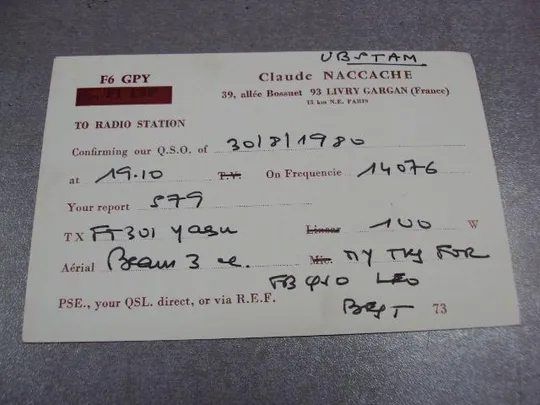 UB5TAM
F6 GPY
Claude NACCACHE
39, allée Bossuet 93 LIVRY GARGAN (France)
15 km N.E. PARIS
TO RADIO STATION
Confirming our Q.S.O. of 30/8/1980
at 19.10 T.U. On Frequencie 14076
Your report 579
TX FT301 yaesu Linear 100 W
Aérial Beam 3 e. Mic. MY TKS FOR
FB QSO LEO
PSE., your QSL. direct, or via R.E.F. BEST 73